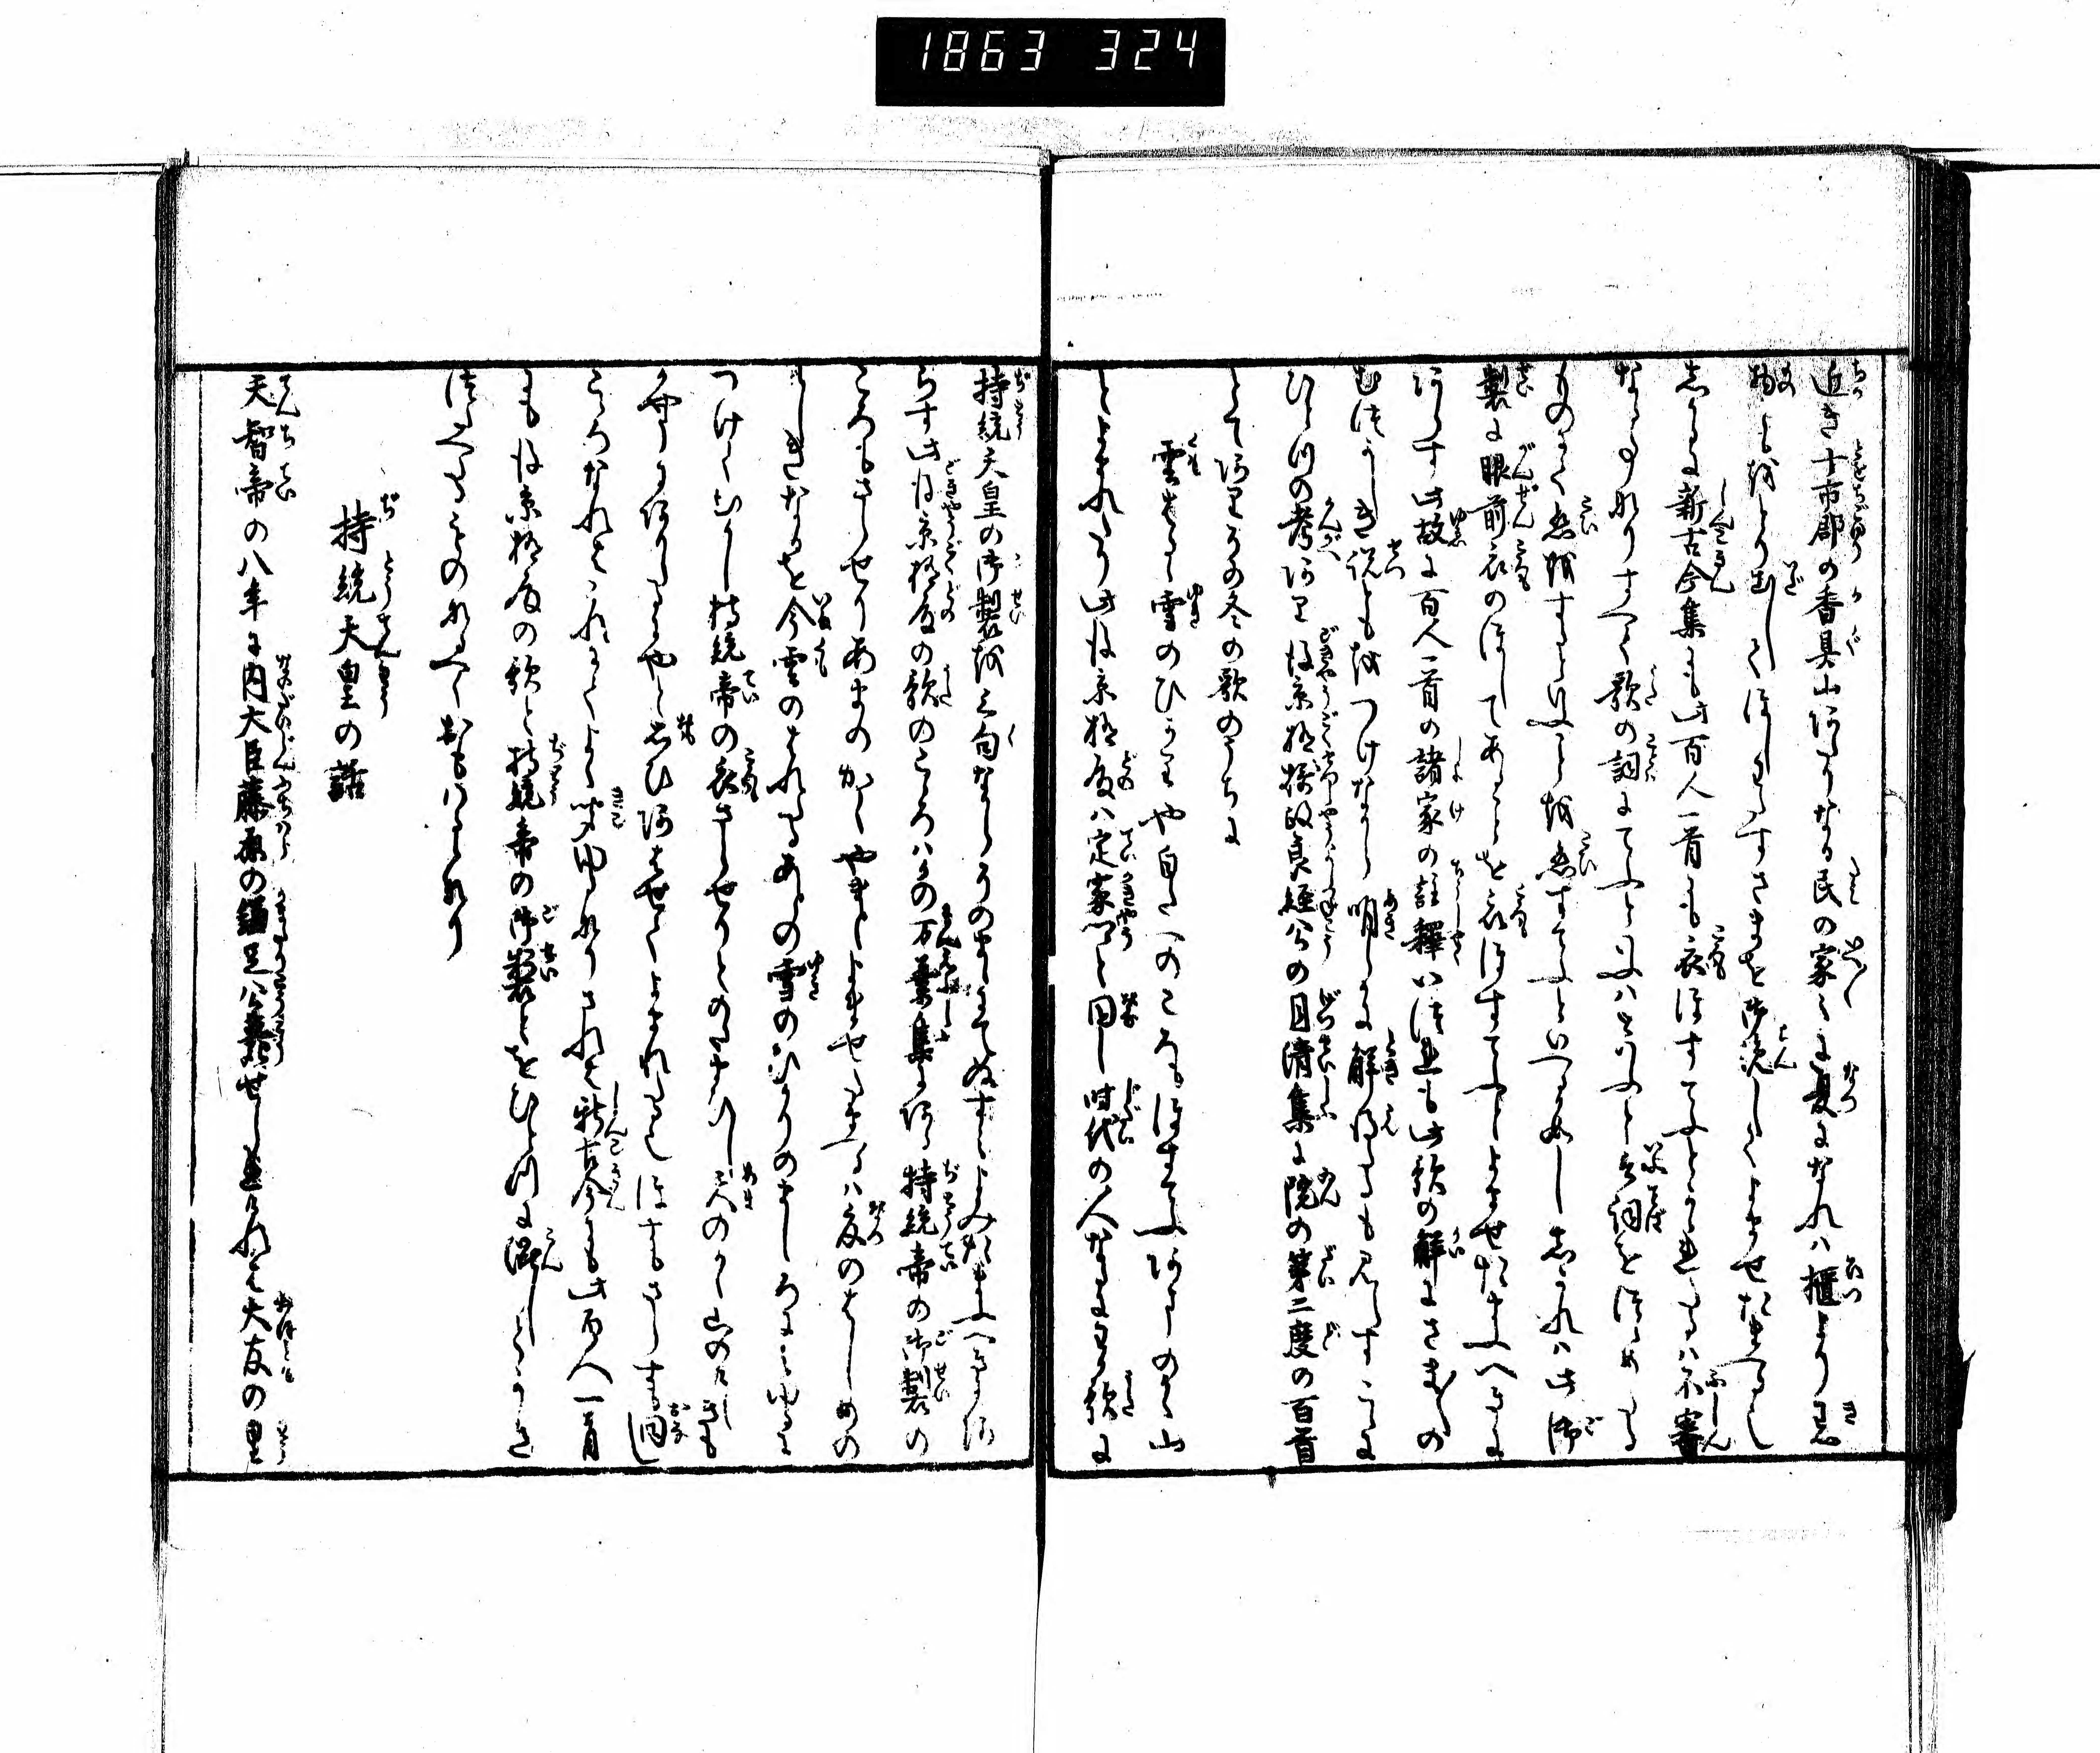 1863 324
近き十市郡の香具山あたりなる民の家〻に夏になれハ櫃より夏
物とも取り出しくほしますさまを御覧してよませ給へるし
しかるに新古今集にも此百人一首にも衣ほすてふとかきたるハ不審
なる事なりすへて歌の詞にてふといふハといふと云詞をつゝめたる
ものにて恋すといふことを恋すてふといへるかめししかれハ此御
製に眼前衣のほしてあることを衣ほすてふとよませ給ふへきに
あらす此故に百人一首の諸家の註釋いつれも此歌の解にさま〳〵の
むつかしき説ともをつけなから明らかに解得たるも見えすこゝに
ひとつの考あり後京極摂政良経公の月清集に院の第二度の百首
とてあるその冬の歌のうちに
雲はるゝ雪のひかりや白たへのころもほすてふあまのかく山
とよまれたり此後京極殿ハ定家卿と同し時代の人なるにその歌に
持統天皇の御製を三句なからそのまゝにてぬすみよみたまふへきにあ
らす此後京極殿の歌のこゝろハかの万葉集にある持統帝の御製の
ころもさらせりあまのかく山とよませたまへるハ夏のはしめの
けしきなるを今雲のはれたるあとの雪のひかりのましろにみゆるに
つけてむかし持統帝の衣さらせりとのたまひし天のかく山のけしきも
かやうにありしにやと思ひあはせてよまれたれはほすもさらすも同し
こゝろなれとこれにてよく聞ゆるなりされは新古今にも此百人一首
にも後京極殿の歌と持統帝の御製とをひとつに混しとりかき
伝へたるものなるへくおもハるゝなり
持統天皇の話
天智帝の八年に内大臣藤原の鎌足公薨せし後なれハ大友の皇